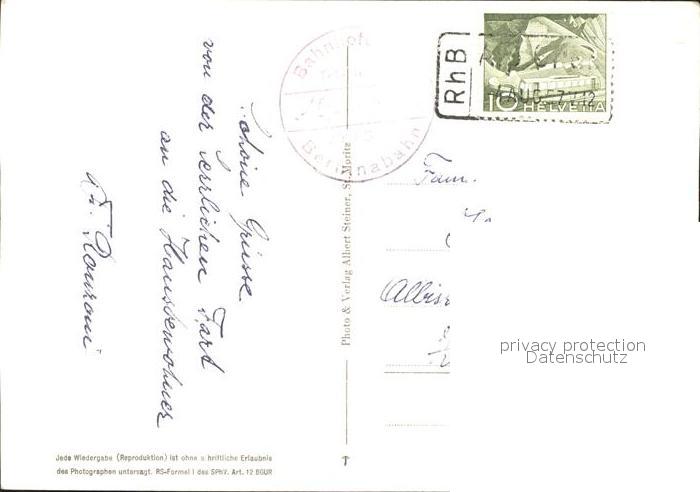 Schöne Grüsse
von der herrlichen Fart
an die Hausbewohner
Bahnhof
Berninabahn
Photo & Verlag Albert Steiner, St. Moritz
RhB
10 HELVETIA
Fam.
Albis
privacy protection
Datenschutz
Jede Wiedergabe (Reproduktion) ist ohne s hriftliche Erlaubnis
des Photographen untersagt. RS-Formel I des SPhV. Art. 12 BGUR